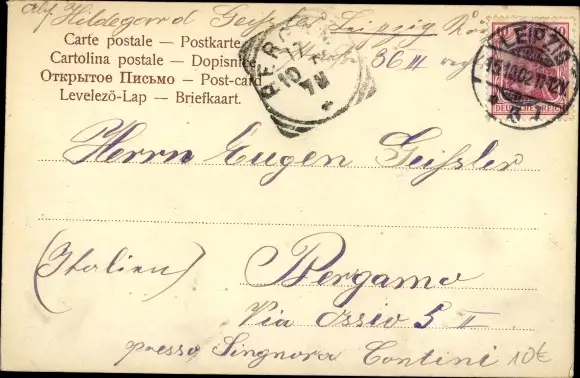 Abs. Hildegard Geissler Leipzig
36 III
Carte postale — Postkarte
Cartolina postale — Dopisnice
Открытое Письмо — Post-card
Levelező-Lap — Briefkaart.
BERGAMO
17
10
7M
LEIPZIG
15.10.02
DEUTSCHES REICH
10
Herrn Eugen Geissler
(Italien)
Bergamo
Via Ossio 5 II
presso Singnora Contini
10€